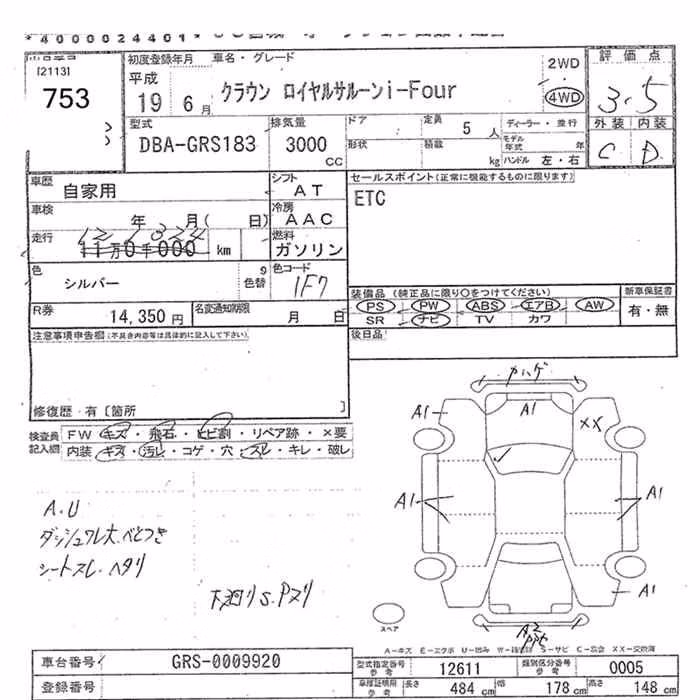 *4000024401*
[2113]
753
初度登録年月 車名・グレード
平成 19 6月 クラウン ロイヤルサルーンi-Four
2WD
4WD
評価点
3.5
型式 排気量 ドア 定員 5人 ディーラー・並行
DBA-GRS183 3000 CC
形状 積載 kg モデル年式 年
ハンドル 左・右
外装 内装
C D
車歴 自家用 シフト AT
セールスポイント(正常に機能するものに限ります)
ETC
車検 年 月( 日) 冷房 AAC
走行 11万0千000 km 燃料 ガソリン
色 シルバー 9 色替 色コード 1F7
装備品 (純正品に限り○をつけてください) 新車保証書
PS PW ABS エアB AW 有・無
SR ナビ TV カワ
R券 14,350円 名変通知期限 月 日
後日品
注意事項申告欄(不具合内容等は具体的に記入して下さい)
修復歴・有〔箇所 〕
検査員記入欄 FW キズ・飛石・ヒビ割・リペア跡・×要
内装 キズ・汚レ・コゲ・穴・スレ・キレ・破レ
A.U
ダッシュワレ大.べとつき
シートスレ.ヘタリ
下廻りS.Pヌリ
カハゲ
A1
A1
XX
A1
A1
A1
A2
スペア
A-キズ E-エクボ U-凹み S-サビ C-腐食 XX-交換済
車台番号 GRS-0009920
型式指定番号 参考 12611 類別区分番号 参考 0005
登録番号
車庫証明用 参考 長さ 484 cm 幅 178 cm 高さ 148 cm